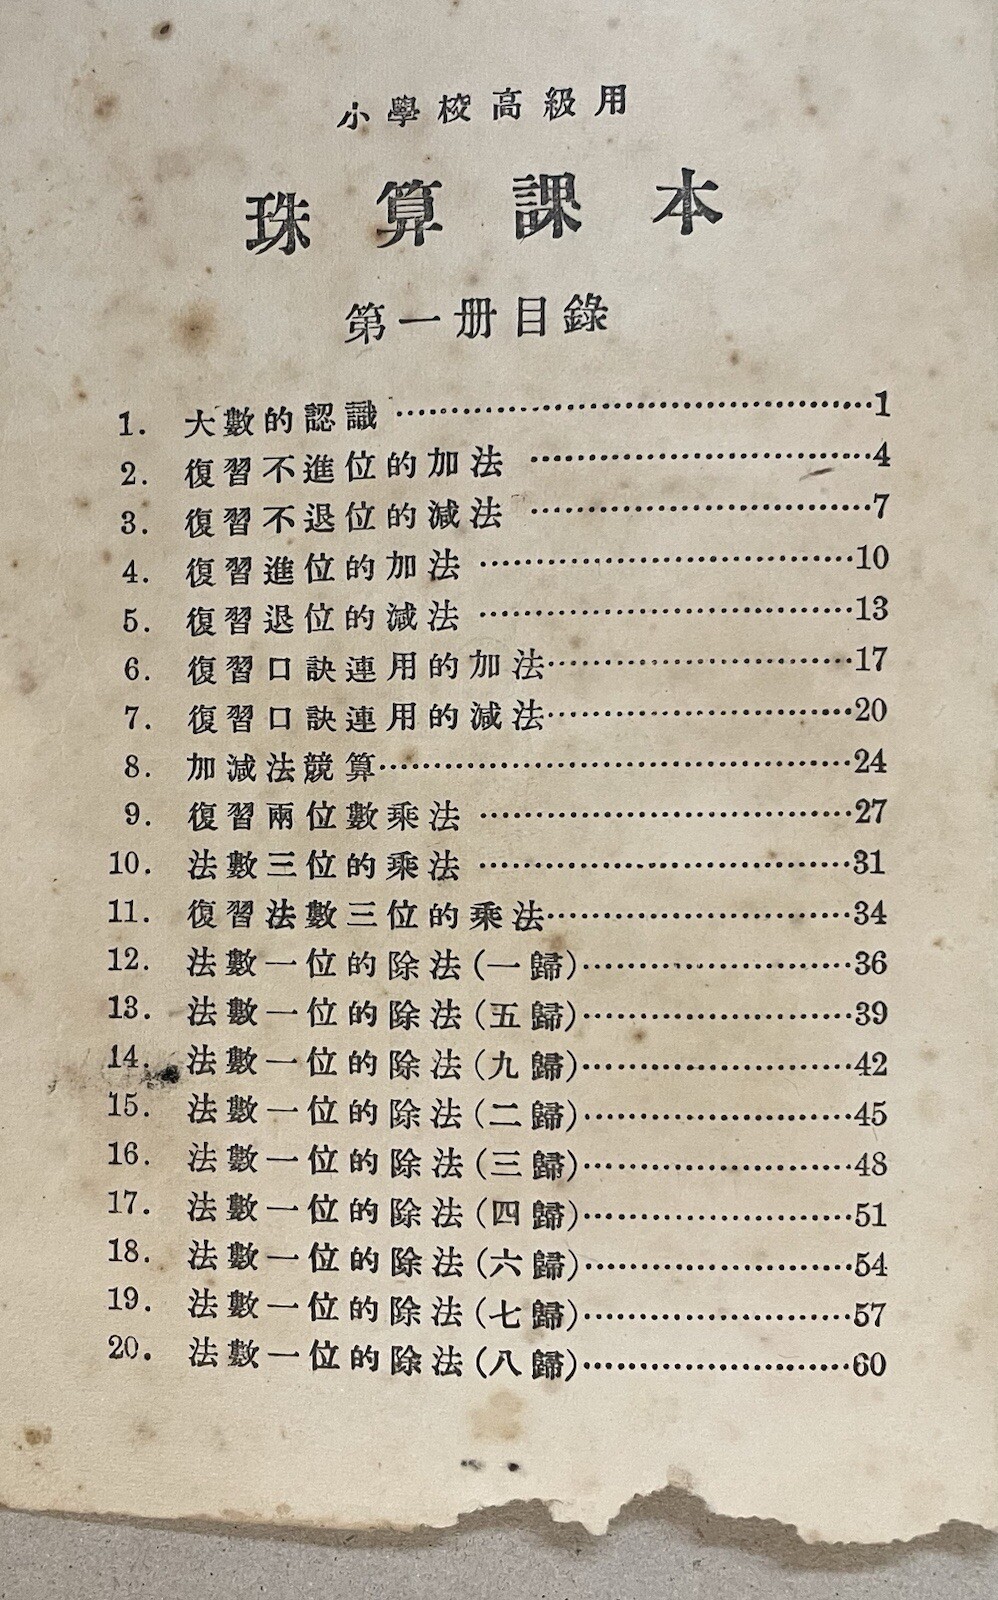 小學校高級用
珠算課本
第一册目錄
1. 大數的認識……………………………………1
2. 復習不進位的加法 …………………………4
3. 復習不退位的減法 …………………………7
4. 復習進位的加法 ……………………………10
5. 復習退位的減法 ……………………………13
6. 復習口訣連用的加法………………………17
7. 復習口訣連用的減法………………………20
8. 加減法競算……………………………………24
9. 復習兩位數乘法 ……………………………27
10. 法數三位的乘法 ……………………………31
11. 復習法數三位的乘法………………………34
12. 法數一位的除法(一歸)……………………36
13. 法數一位的除法(五歸)……………………39
14. 法數一位的除法(九歸)……………………42
15. 法數一位的除法(二歸)……………………45
16. 法數一位的除法(三歸)……………………48
17. 法數一位的除法(四歸)……………………51
18. 法數一位的除法(六歸)……………………54
19. 法數一位的除法(七歸)……………………57
20. 法數一位的除法(八歸)……………………60